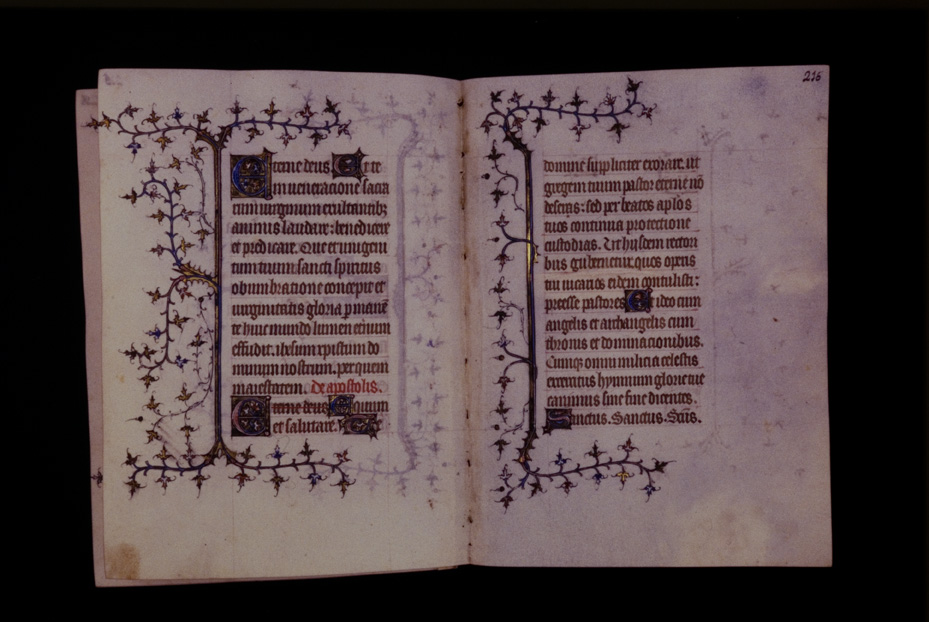 Eterne deus Et te
in ueneratione sacra
rum uirginum exultantibz
animis laudare: benedicere
et predicare. Que et unigeni
tum tuum sancti spiritus
obumbratione concepit et
uirginitatis gloria pmane
te huic mundo lumen eternum
effudit. ihesum xpistum do
minum nostrum. per quem
maiestatem. de apostolis.
Eterne deus Equum
et salutare. Te
216
domine suppliciter exorare. ut
gregem tuum pastor eterne nō
deseras: sed per beatos aplos
tuos continua protectione
custodias. Ut hysdem rectori
bus gubernetur. quos operis
tui uicarios eidem contulisti:
preesse pastores Et ideo cum
angelis et archangelis cum
thronis et dominacionibus.
Cumqz omni milicia celestis
exercitus hymnum glorie tue
canimus sine fine dicentes.
Sanctus. Sanctus. Scūs.